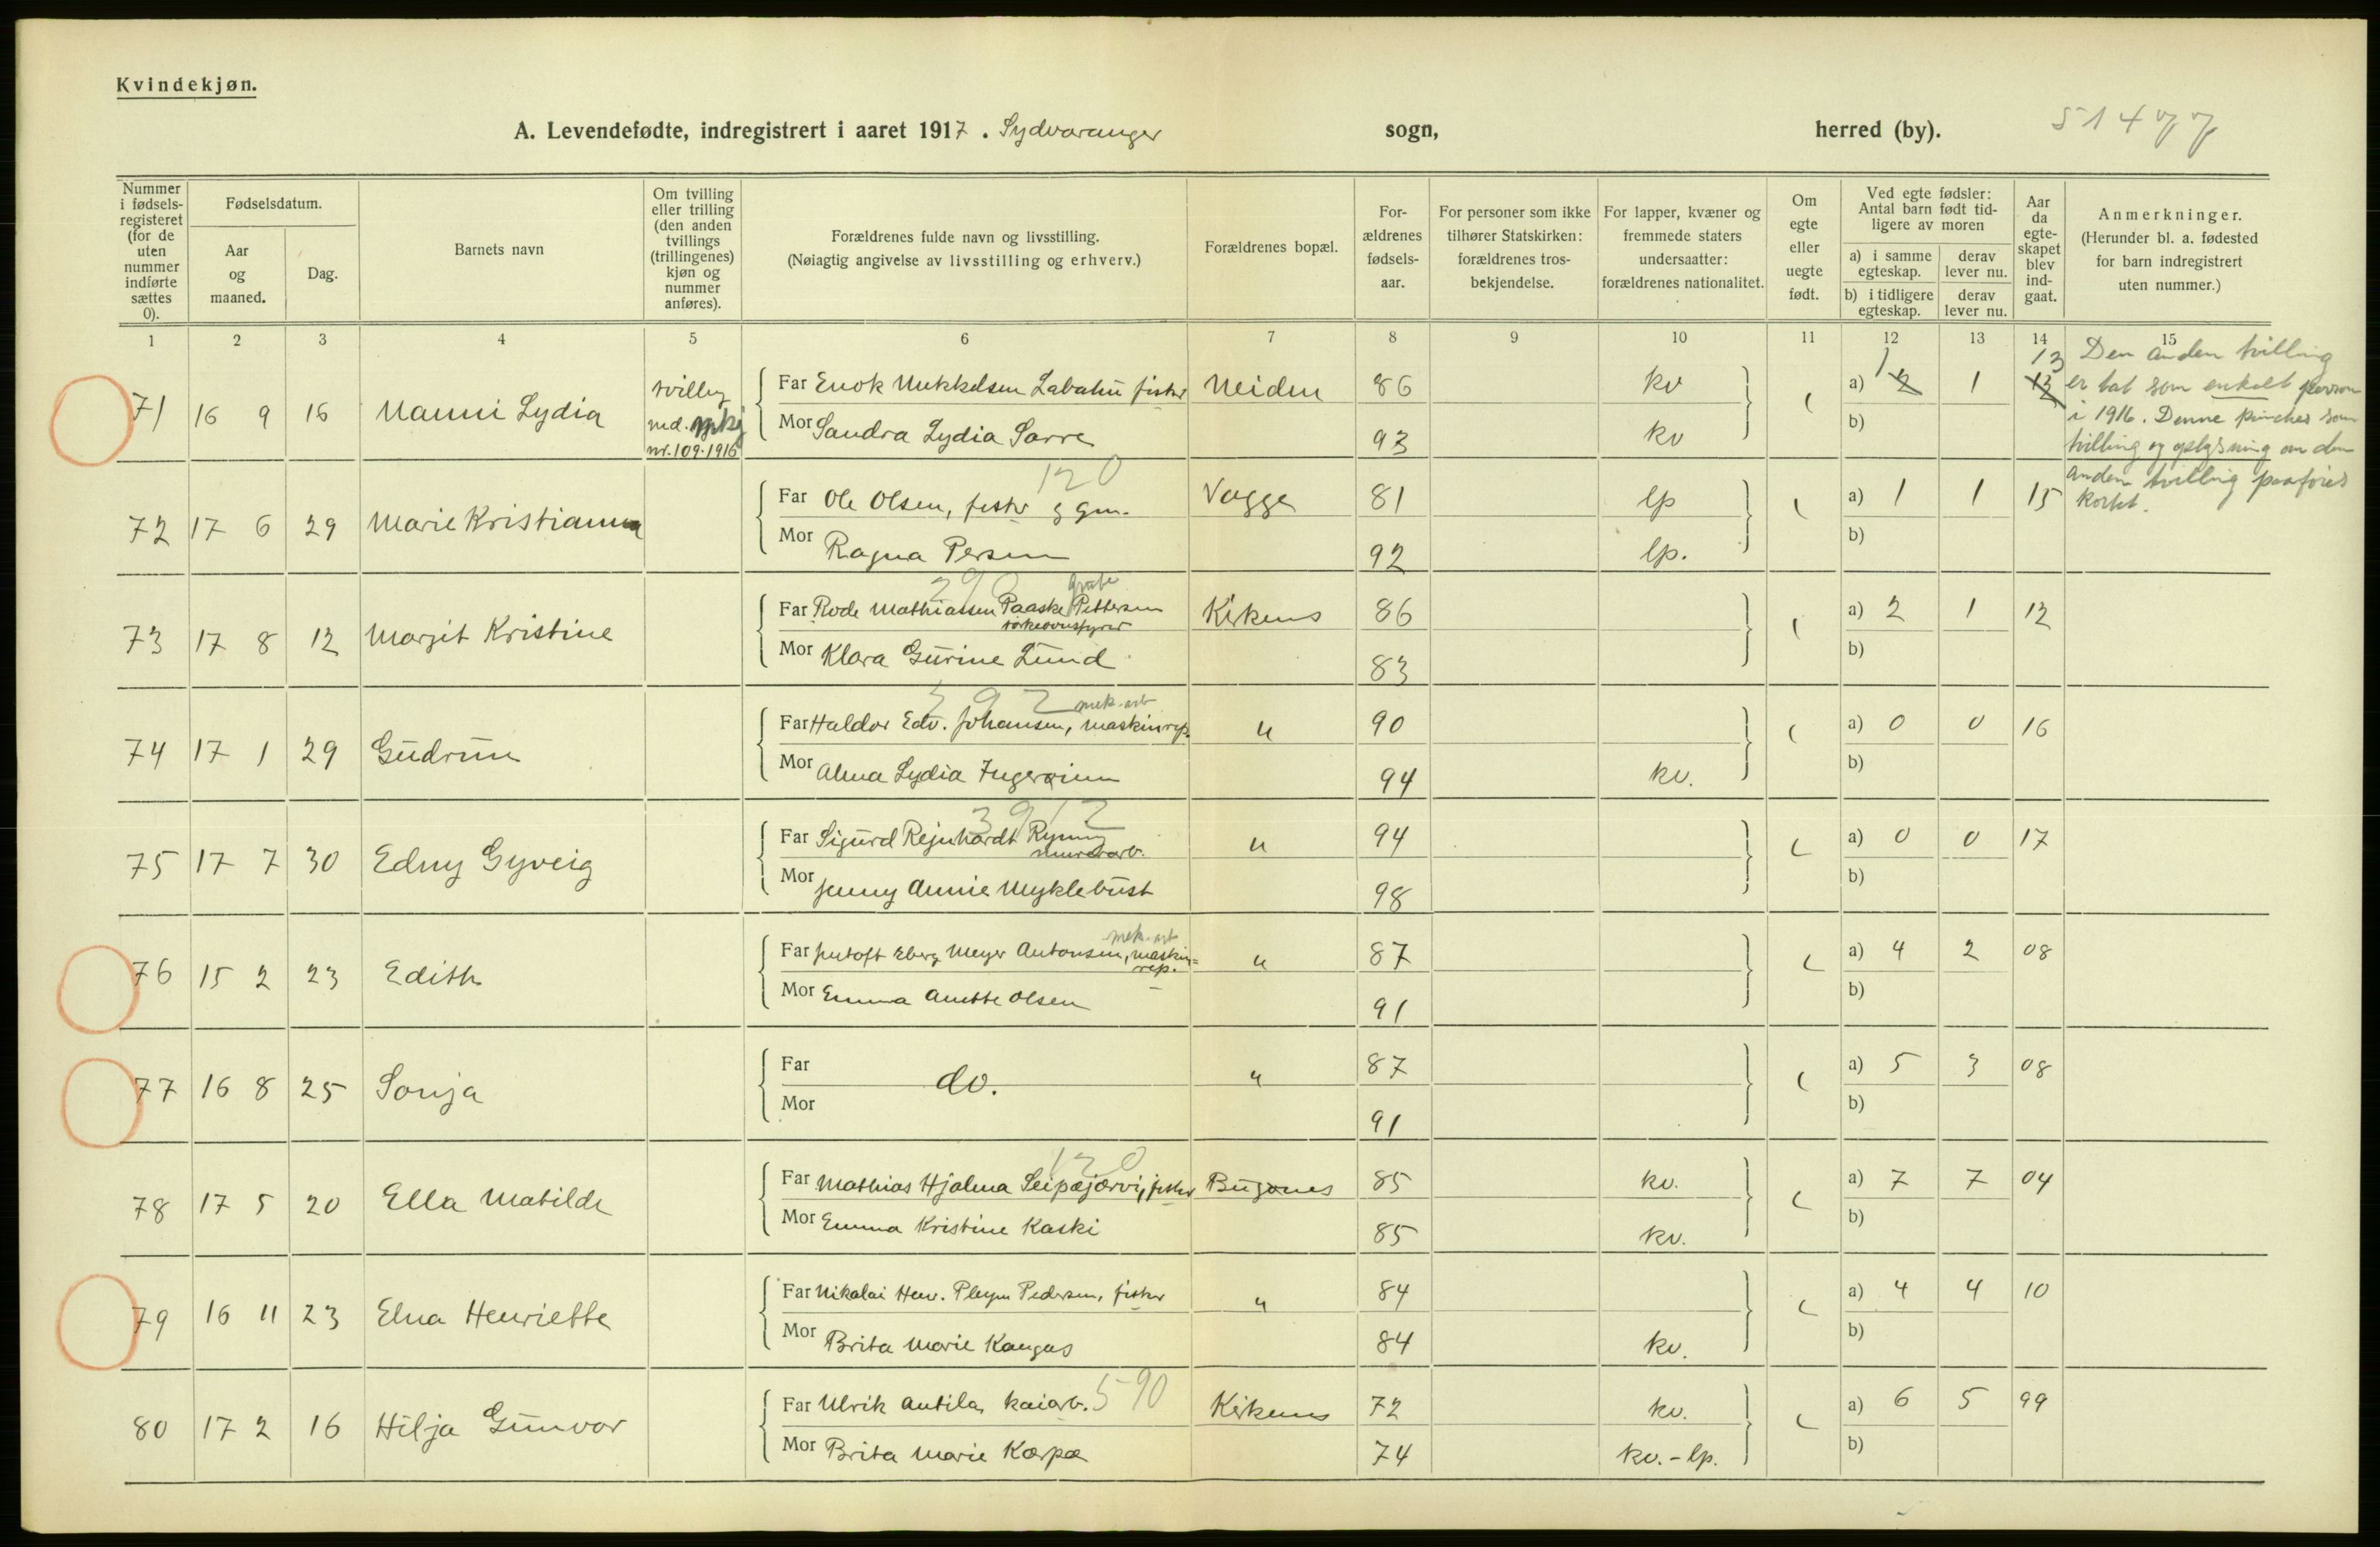 Kvindekjøn.
A. Levendefødte, indregistrert i aaret 1917. Sydvaranger sogn, herred (by). 51477
Nummer i fødselsregisteret (for de uten nummer indførte sættes 0).
Fødselsdatum.
Aar og maaned.
Dag.
Barnets navn
Om tvilling eller trilling (den anden tvillings (trillingenes) kjøn og nummer anføres).
Forældrenes fulde navn og livsstilling.
(Nøiagtig angivelse av livsstilling og erhverv.)
Forældrenes bopæl.
Forældrenes fødselsaar.
For personer som ikke tilhører Statskirken: forældrenes trosbekjendelse.
For lapper, kvæner og fremmede staters undersaatter: forældrenes nationalitet.
Om egte eller uegte født.
Ved egte fødsler: Antal barn født tidligere av moren
a) i samme egteskap. derav lever nu.
b) i tidligere egteskap. derav lever nu.
Aar da egteskapet blev indgaat.
Anmerkninger.
(Herunder bl. a. fødested for barn indregistrert uten nummer.)
1 2 3 4 5 6 7 8 9 10 11 12 13 14 15
71 16 9 16 Nanni Lydia tvilling med nr. 109-1916 Far Enok Mikkelsen Labahü fisker Neiden 86 kv a) 1 1 13
Mor Sandra Lydia Sarre 93 kv b)
Den anden tvilling
er tat som enkelt person
i 1916. Denne punches som
tvilling og oplysning om den
anden tvilling paaføres
kortet.
120
72 17 6 29 Marie Kristianna Far Ole Olsen, fisker g gm. Vagge 81 lp a) 1 1 15
Mor Ragna Persen 92 lp. b)
73 17 8 12 Margit Kristine Far Rode Mathiassen Paaske Pettersen Kirkenes 86 a) 2 1 12
Mor Klara Gurine Lund 83 b)
392 mek-arb
74 17 1 29 Gudrun Far Haldor Edv. Johansen, maskinrep. " 90 a) 0 0 16
Mor Alma Lydia 94 kv. b)
3912
75 17 7 30 Edny Gyveig Far Sigurd Rejnhardt " 94 a) 0 0 17
Mor Jenny Annie Myklebust 98 b)
mek-arb
76 15 2 23 Edith Far Eberg Meyer Antonsen, maskinrep. " 87 a) 4 2 08
Mor Emma Anette Olsen 91 b)
77 16 8 25 Sonja Far do. " 87 a) 5 3 08
Mor 91 b)
120
78 17 5 20 Ella Matilde Far Mathias Hjalma Seipæjærvi, fisker Bugønes 85 kv. a) 7 7 04
Mor Emma Kristine Kaski 85 kv. b)
79 16 11 23 Elna Henriette Far Nikolai Henr. Pleym Pedersen, fisker " 84 a) 4 4 10
Mor Brita Marie Kangas 84 kv. b)
590
80 17 2 16 Hilja Gunvor Far Ulrik Antila, kaiarb. Kirkenes 72 kv. a) 6 5 99
Mor Brita Marie Kærpæ 74 kv. - lp. b)